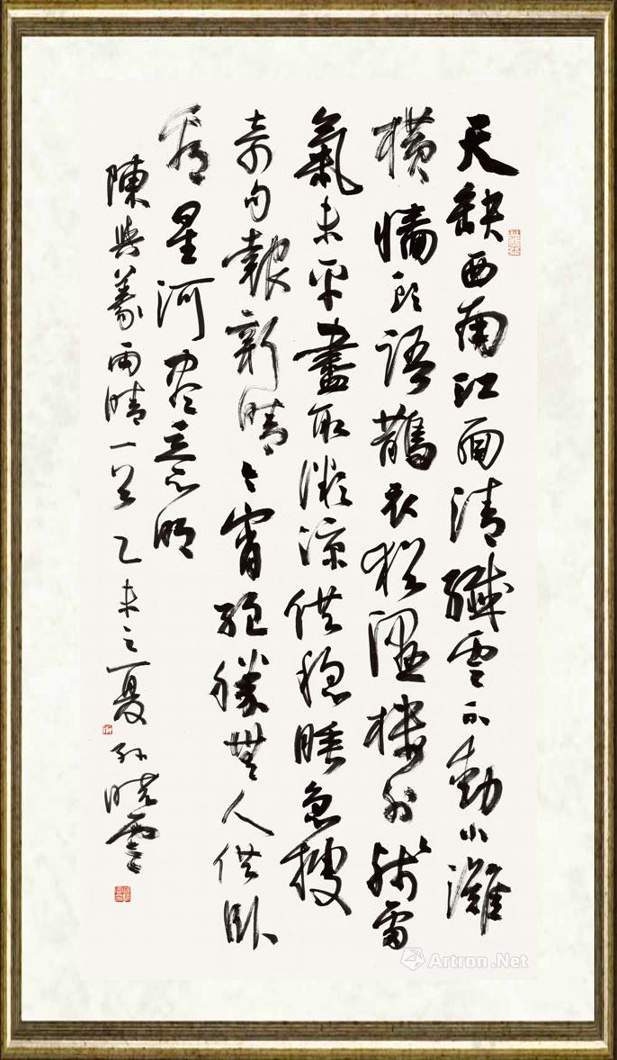 天缺西南江面清纖雲不動小灘
橫墻頭語鵲衣猶溼樓外殘雷
氣未平盡取微涼供穩睡急搜
奇句報新晴今宵絕勝無人供卧
看星河尽意明
陳與義雨晴一首乙未之夏孫曉雲
Artron.Net